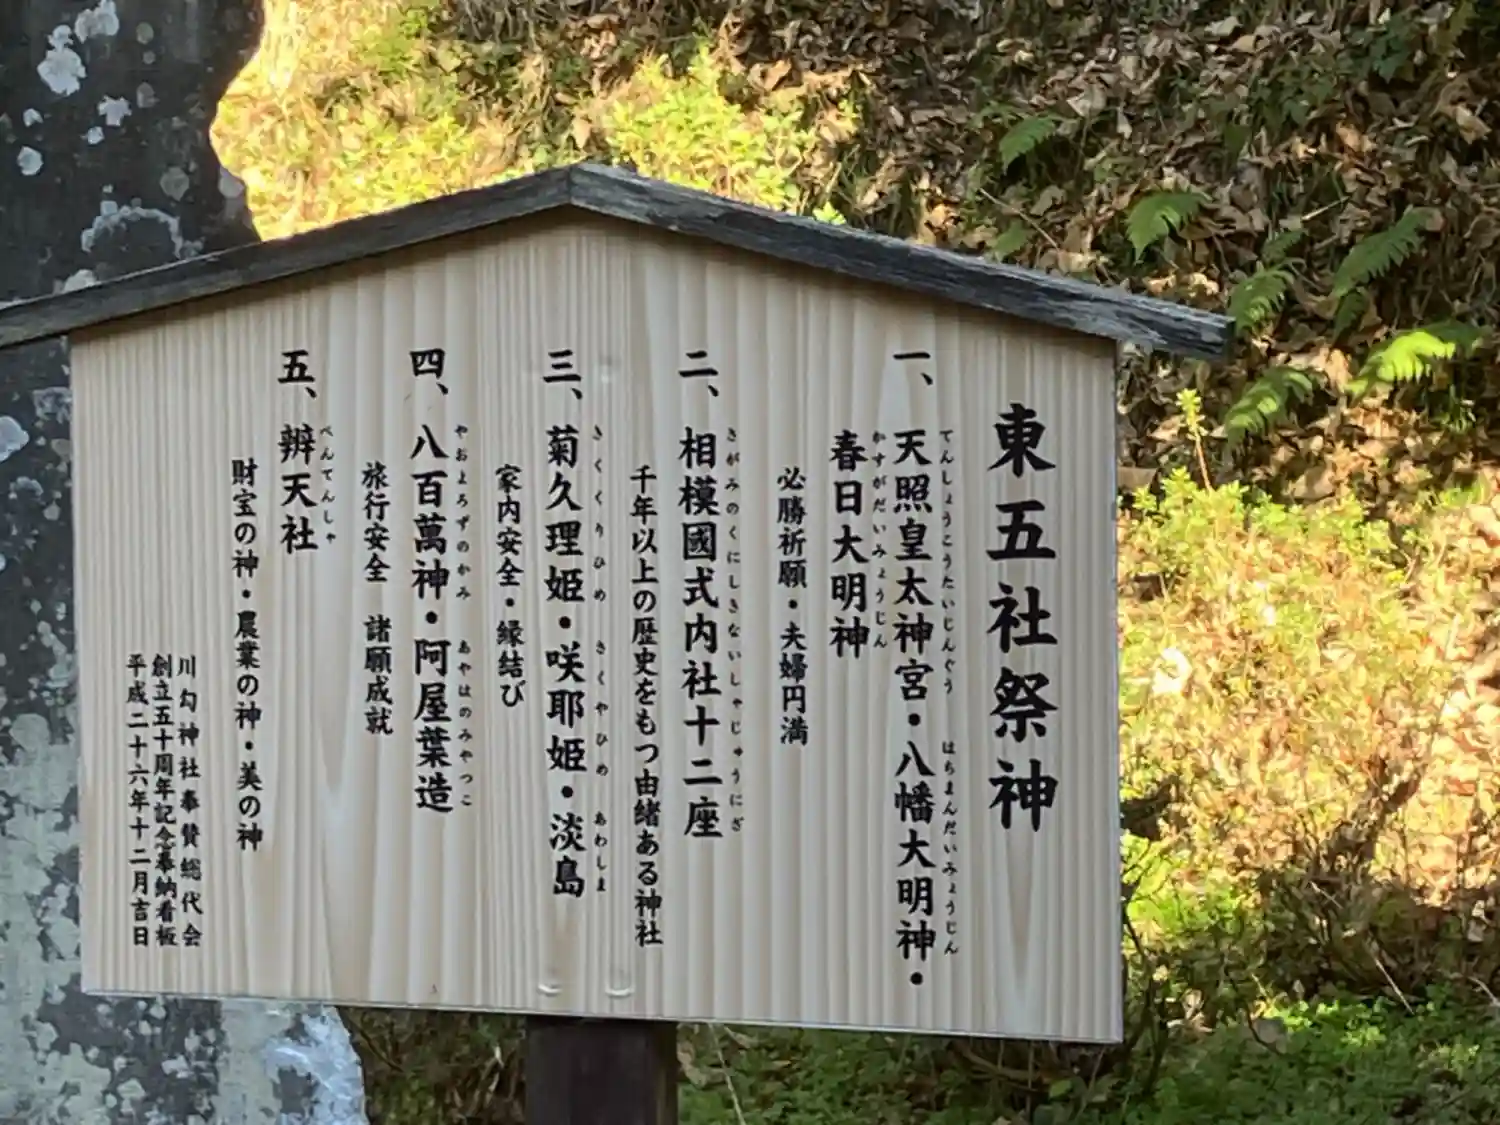 東五社祭神
一、天照皇太神宮・八幡大明神・
てんしょうこうたいじんぐう はちまんだいみょうじん
春日大明神
かすがだいみょうじん
必勝祈願・夫婦円満
二、相模國式内社十二座
さがみのくにしきないしゃじゅうにざ
千年以上の歴史をもつ由緒ある神社
三、菊久理姫・咲耶姫・淡島
きくくりひめ さくやひめ あわしま
家内安全・縁結び
四、八百萬神・阿屋葉造
やおよろずのかみ あやはのみやつこ
旅行安全 諸願成就
五、辨天社
べんてんしゃ
財宝の神・農業の神・美の神
川勾神社奉賛総代会
創立五十周年記念奉納看板
平成二十六年十二月吉日